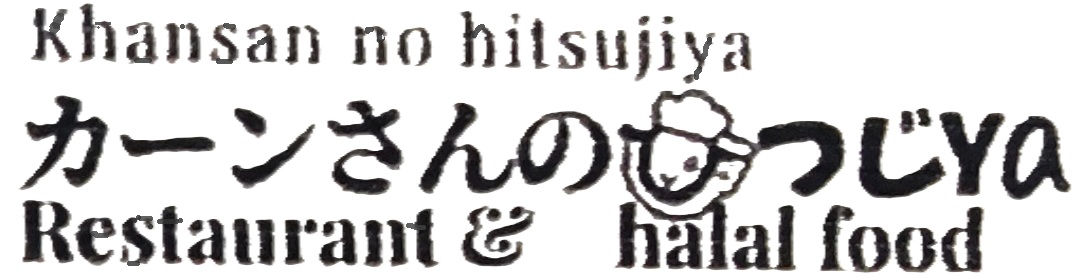 Khansan no hitsujiya
カーンさんのひつじYa
Restaurant & halal food